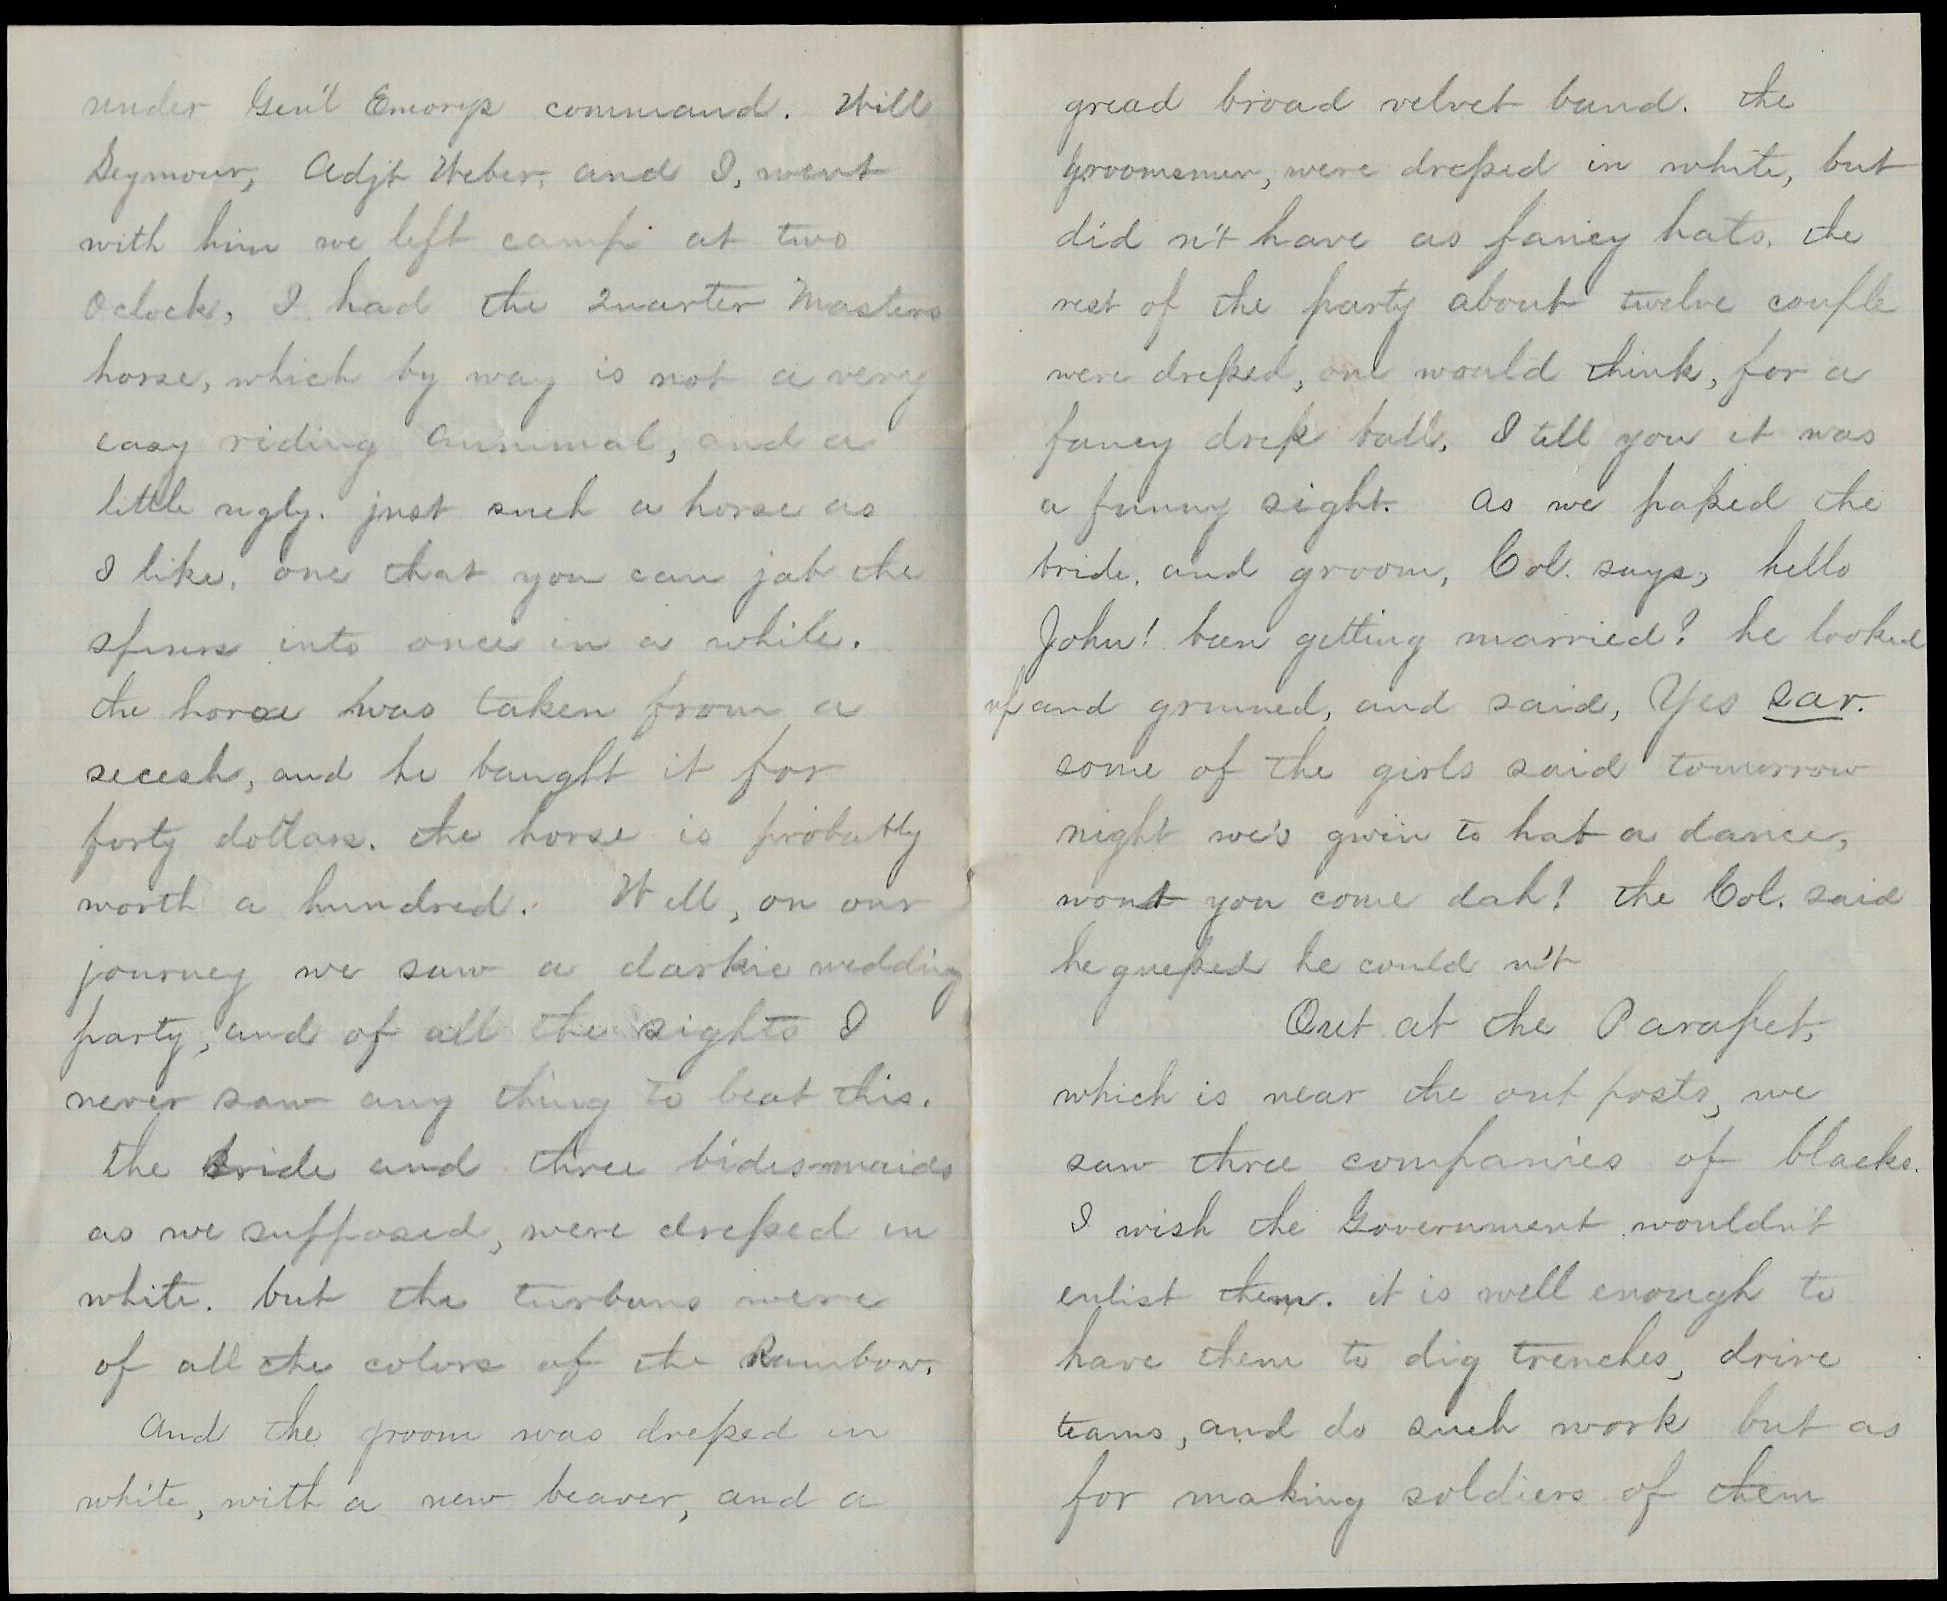 under Gen'l Emorys command. Will
Seymour, Adjt Weber, and I, went
with him we left camp at two
Oclock, I had the Quarter Masters
horse, which by way is not a very
easy riding annimal, and a
little ugly. just such a horse as
I like, one that you can jab the
spurs into once in a while.
the horse was taken from a
secesh, and he baught it for
forty dollars. the horse is probably
worth a hundred. Well, on our
journey we saw a darkie wedding
party, and of all the sights I
never saw any thing to beat this.
the bride and three bidesmaids
as we supposed, were dressed in
white. but the turbans were
of all the colors of the Rainbow.
And the groom was dressed in
white, with a new beaver, and a
gread broad velvet band. the
groomsmen, were dressed in white, but
did n't have as fancy hats. the
rest of the party about twelve couple
were dressed, one would think, for a
fancy dress ball. I tell you it was
a funny sight. As we passed the
bride, and groom, Col. says, hello
John! been getting married? he looked
up and grinned, and said, Yes sar.
some of the girls said tomorrow
night we's gwin to hab a dance,
wont you come dah! the Col. said
he guessed he could n't
Out at the Parapet,
which is near the out posts, we
saw three companies of blacks.
I wish the Government wouldn't
enlist them. it is well enough to
have them to dig trenches, drive
teams, and do such work but as
for making soldiers of them